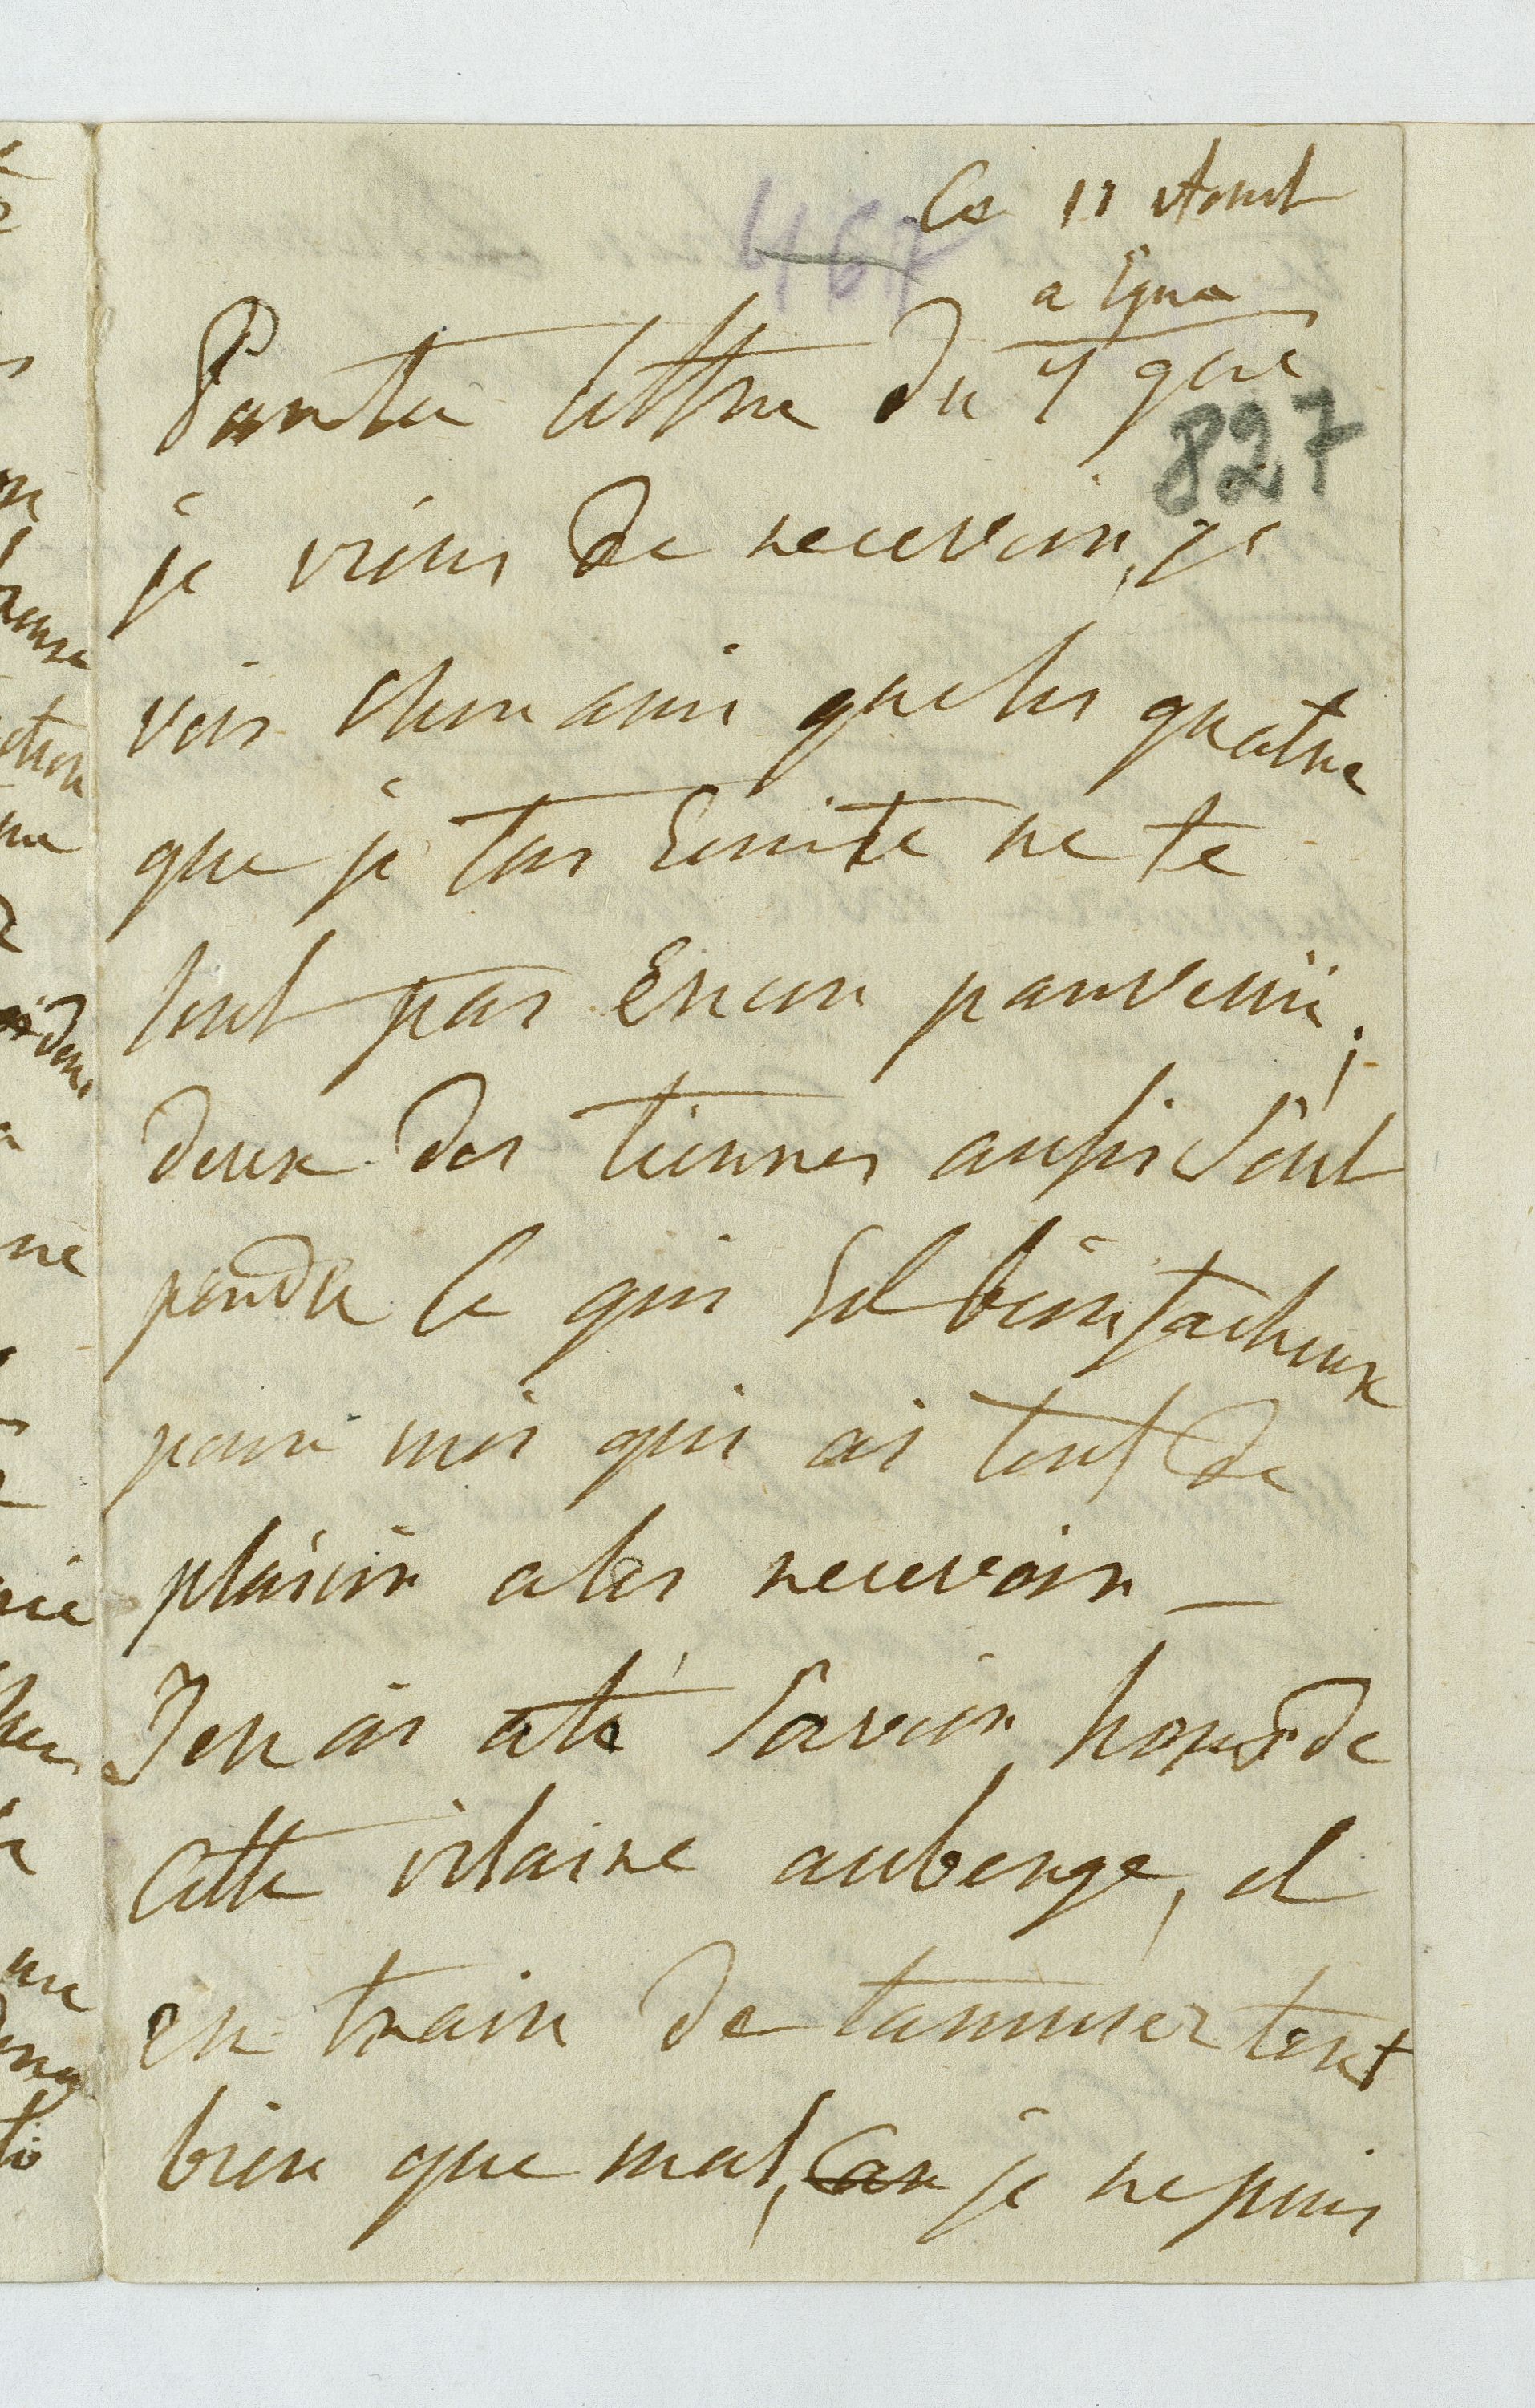 Ce 11 Aout
467
a Egna
Par ta lettre du 7 que
827
je viens de recevoir, je
vois cher ami que les quatre
que je tais Ecrite ne te
sont pas Encor parvenü;
deux des tiennes aussi sont
perdu ce qui Est bien facheux
pour moi qui ai tent de
plaisir a les recevoir _
Jen ai ate' savoir hors de
Cette vilaine auberge, et
en train de tamuser tent
bien que mal, Car je ne puis